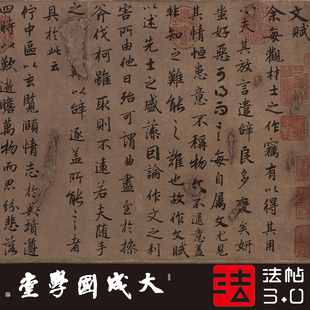 文賦
余每觀材士之作竊有以得其用
心夫其放言遣辭良多變矣妍
蚩好惡可得而言每自属文尤見
其情恒患意不稱物文不逮意盖
非知之難能之難也故作文賦
以述先士之盛藻因論作文之利
害所由他日殆可謂曲盡至於操
斧伐柯雖取則不遠若夫隨手
以辭逮盖所能之者
具於此云
佇中區以玄覽頤情志於典墳遵
四時以歎逝瞻萬物而思紛悲落
大成國學堂
法
法帖
3.0